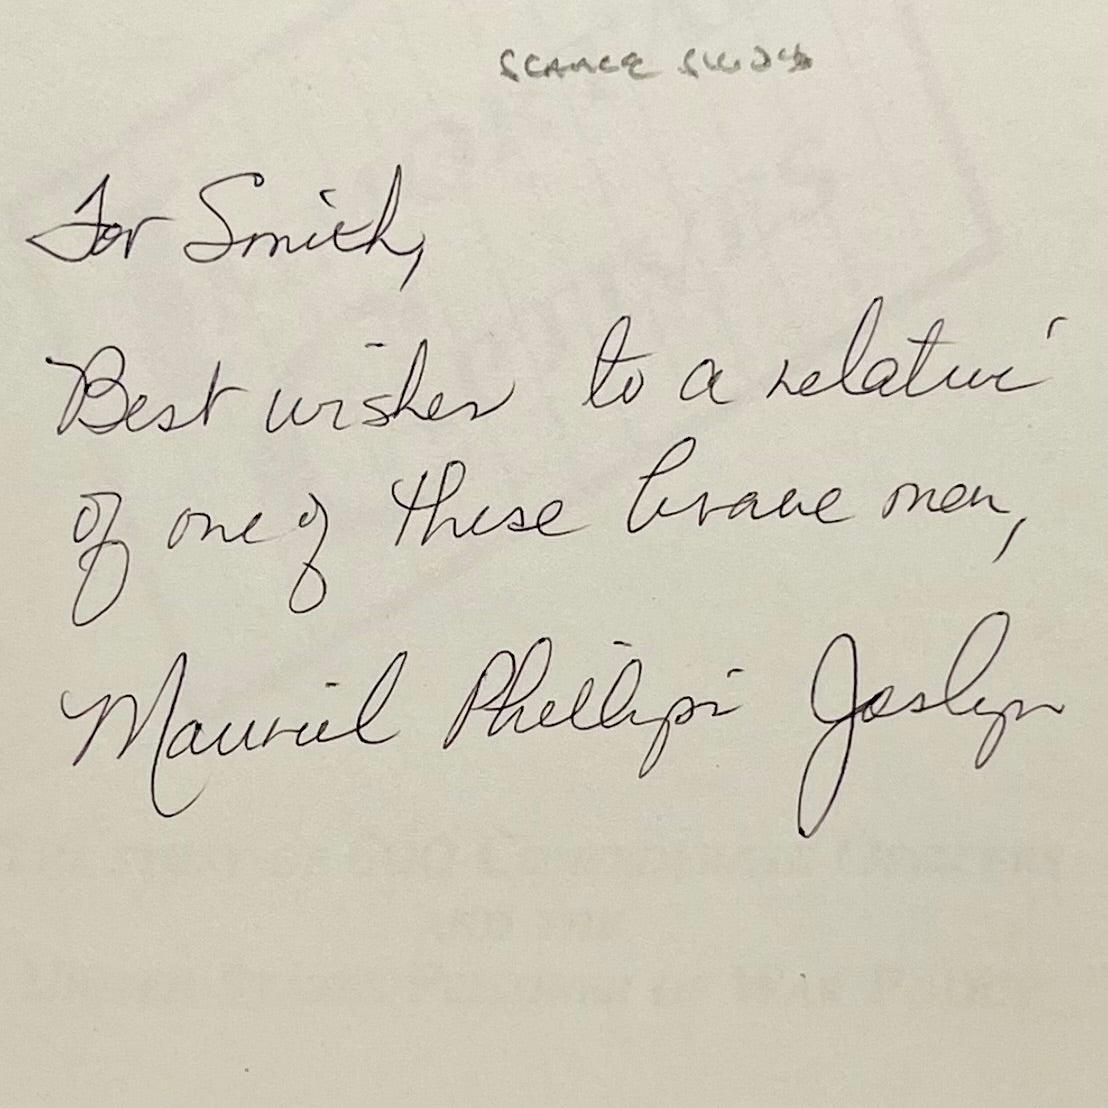 SCARCE STUDY
For Smith,
Best wishes to a relative
of one of these brave men,
Mauriel Phillips Joslyn